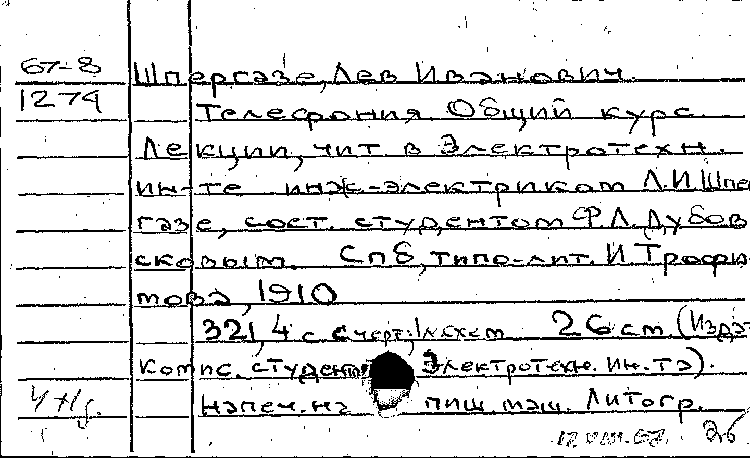 67-8 Шпергазе, Лев Иванович.
1274 Телефония Общий курс.
Лекции, чит. в Электротехн.
ин-те инж-электриком Л.И.Шпе
газе, сост. студентом Ф.Л.Дубов
сковым. Спб, типо-лит. И.Трофи
мова, 1910
321, 4 с. с черт.; 26 см (Издат.
комис. студентов Электротехн. ин-та).
Напеч. на пиш. маш. Литогр.
12 VIII.67. 26